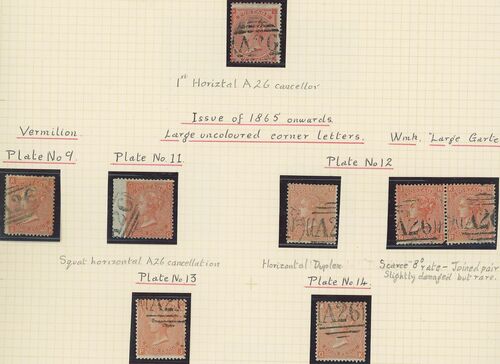 POSTAGE
A26
1st Horiztal A26 cancellor
Issue of 1865 onwards.
Large uncoloured corner letters.
Wmk. "Large Garte
Vermilion
Plate No 9
Plate No. 11
Plate No 12
A26
A26
Squat horizontal A26 cancellation
Horizontal Duplex
Scarce 8d rate - Joined pair
Slightly damaged but rare.
Plate No 13
Plate No 14
A26
A26